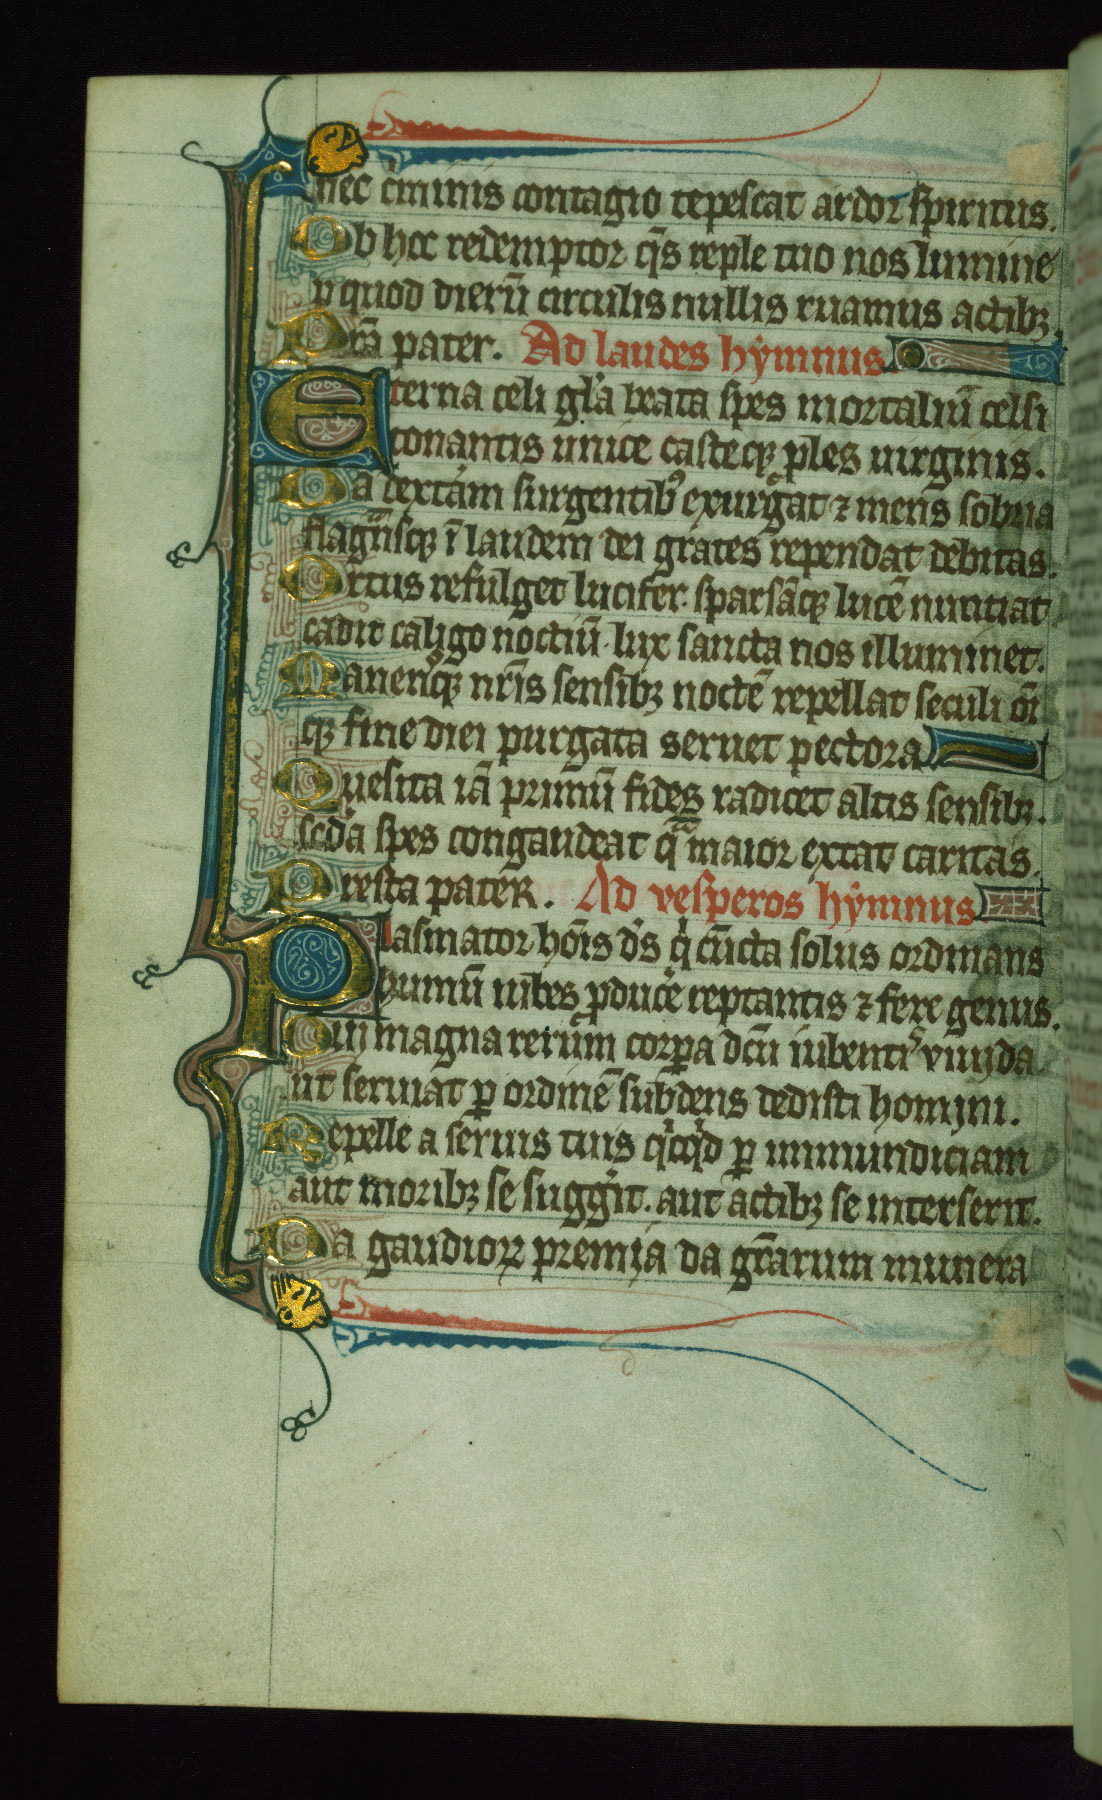 nec c̾iminis contagio tepescat ardor spiritus.
Ob hoc redemptor q̄s reple tuo nos lumine
ꝑ quod dierū circulis nullis ruamus actibꝫ.
Prā pater. Ad laudes hẏmnus
Eterna celi gl̄a beata spes mortaliū celsi
tonantis unice casteqꝫ ꝓles uirginis.
Da dext̾am surgentibꝰ exurgat ⁊ mens sobria
flag̾nsqꝫ ī laudem dei grates rependat debitas.
Ortus refulget lucifer. sparsāqꝫ lucē nuntiat
cadit caligo noctiū. lux sancta nos illuminet.
Manensqꝫ nr̄is sensibꝫ noctē repellat seculi ōī
qꝫ fine diei purgata seruet pectora.
Quesita iā primū fides radicet altis sensibꝫ.
scd̄a spes congaudeat q̄ maior extat caritas.
Presta pateR. Ad vesperos hẏmnus
Plasmator hoīs d̄s q̇ cūcta solus ordinans
humū iubes ꝓducē reptantis ⁊ fere genus.
Qui magna rerum corꝑa dc̄u iubentꝭ viuida
ut seruiat ꝑ ordinē subdens dedisti homini.
Repelle a seruis tuis q̇cq̇d ꝑ immundiciam
aut moribꝫ se sugg̾it. aut actibꝫ se interserit.
Da gaudioꝝ premia da gr̄arum munera